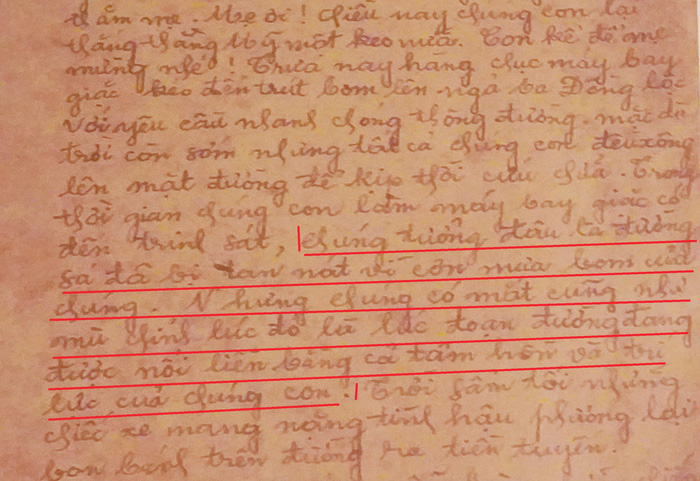 thắm mẹ. Mẹ ơi! chiều nay chúng con lại
thắng thằng Mỹ một keo nữa. Con kể để mẹ
mừng nhé! Trưa nay hàng chục máy bay
giặc kéo đến trút bom lên ngã ba Đồng lộc
Với yêu cầu nhanh chóng thông đường. mặc dù
trời còn sớm nhưng tất cả chúng con đều xông
lên mặt đường để kịp thời cứu chữa. Trong
thời gian chúng con làm máy bay giặc có
đến trinh sát, chúng tưởng đâu là đường
sá đã bị tan nát vì cơn mưa bom của
chúng. Nhưng chúng có mắt cũng như
mù chính lúc đó là lúc đoạn đường đang
được nối liền bằng cả tâm hồn và trí
lực của chúng con. Trời sầm tối những
chiếc xe mang nặng tình hậu phương lại
bon bánh trên đường ra tiền tuyến.